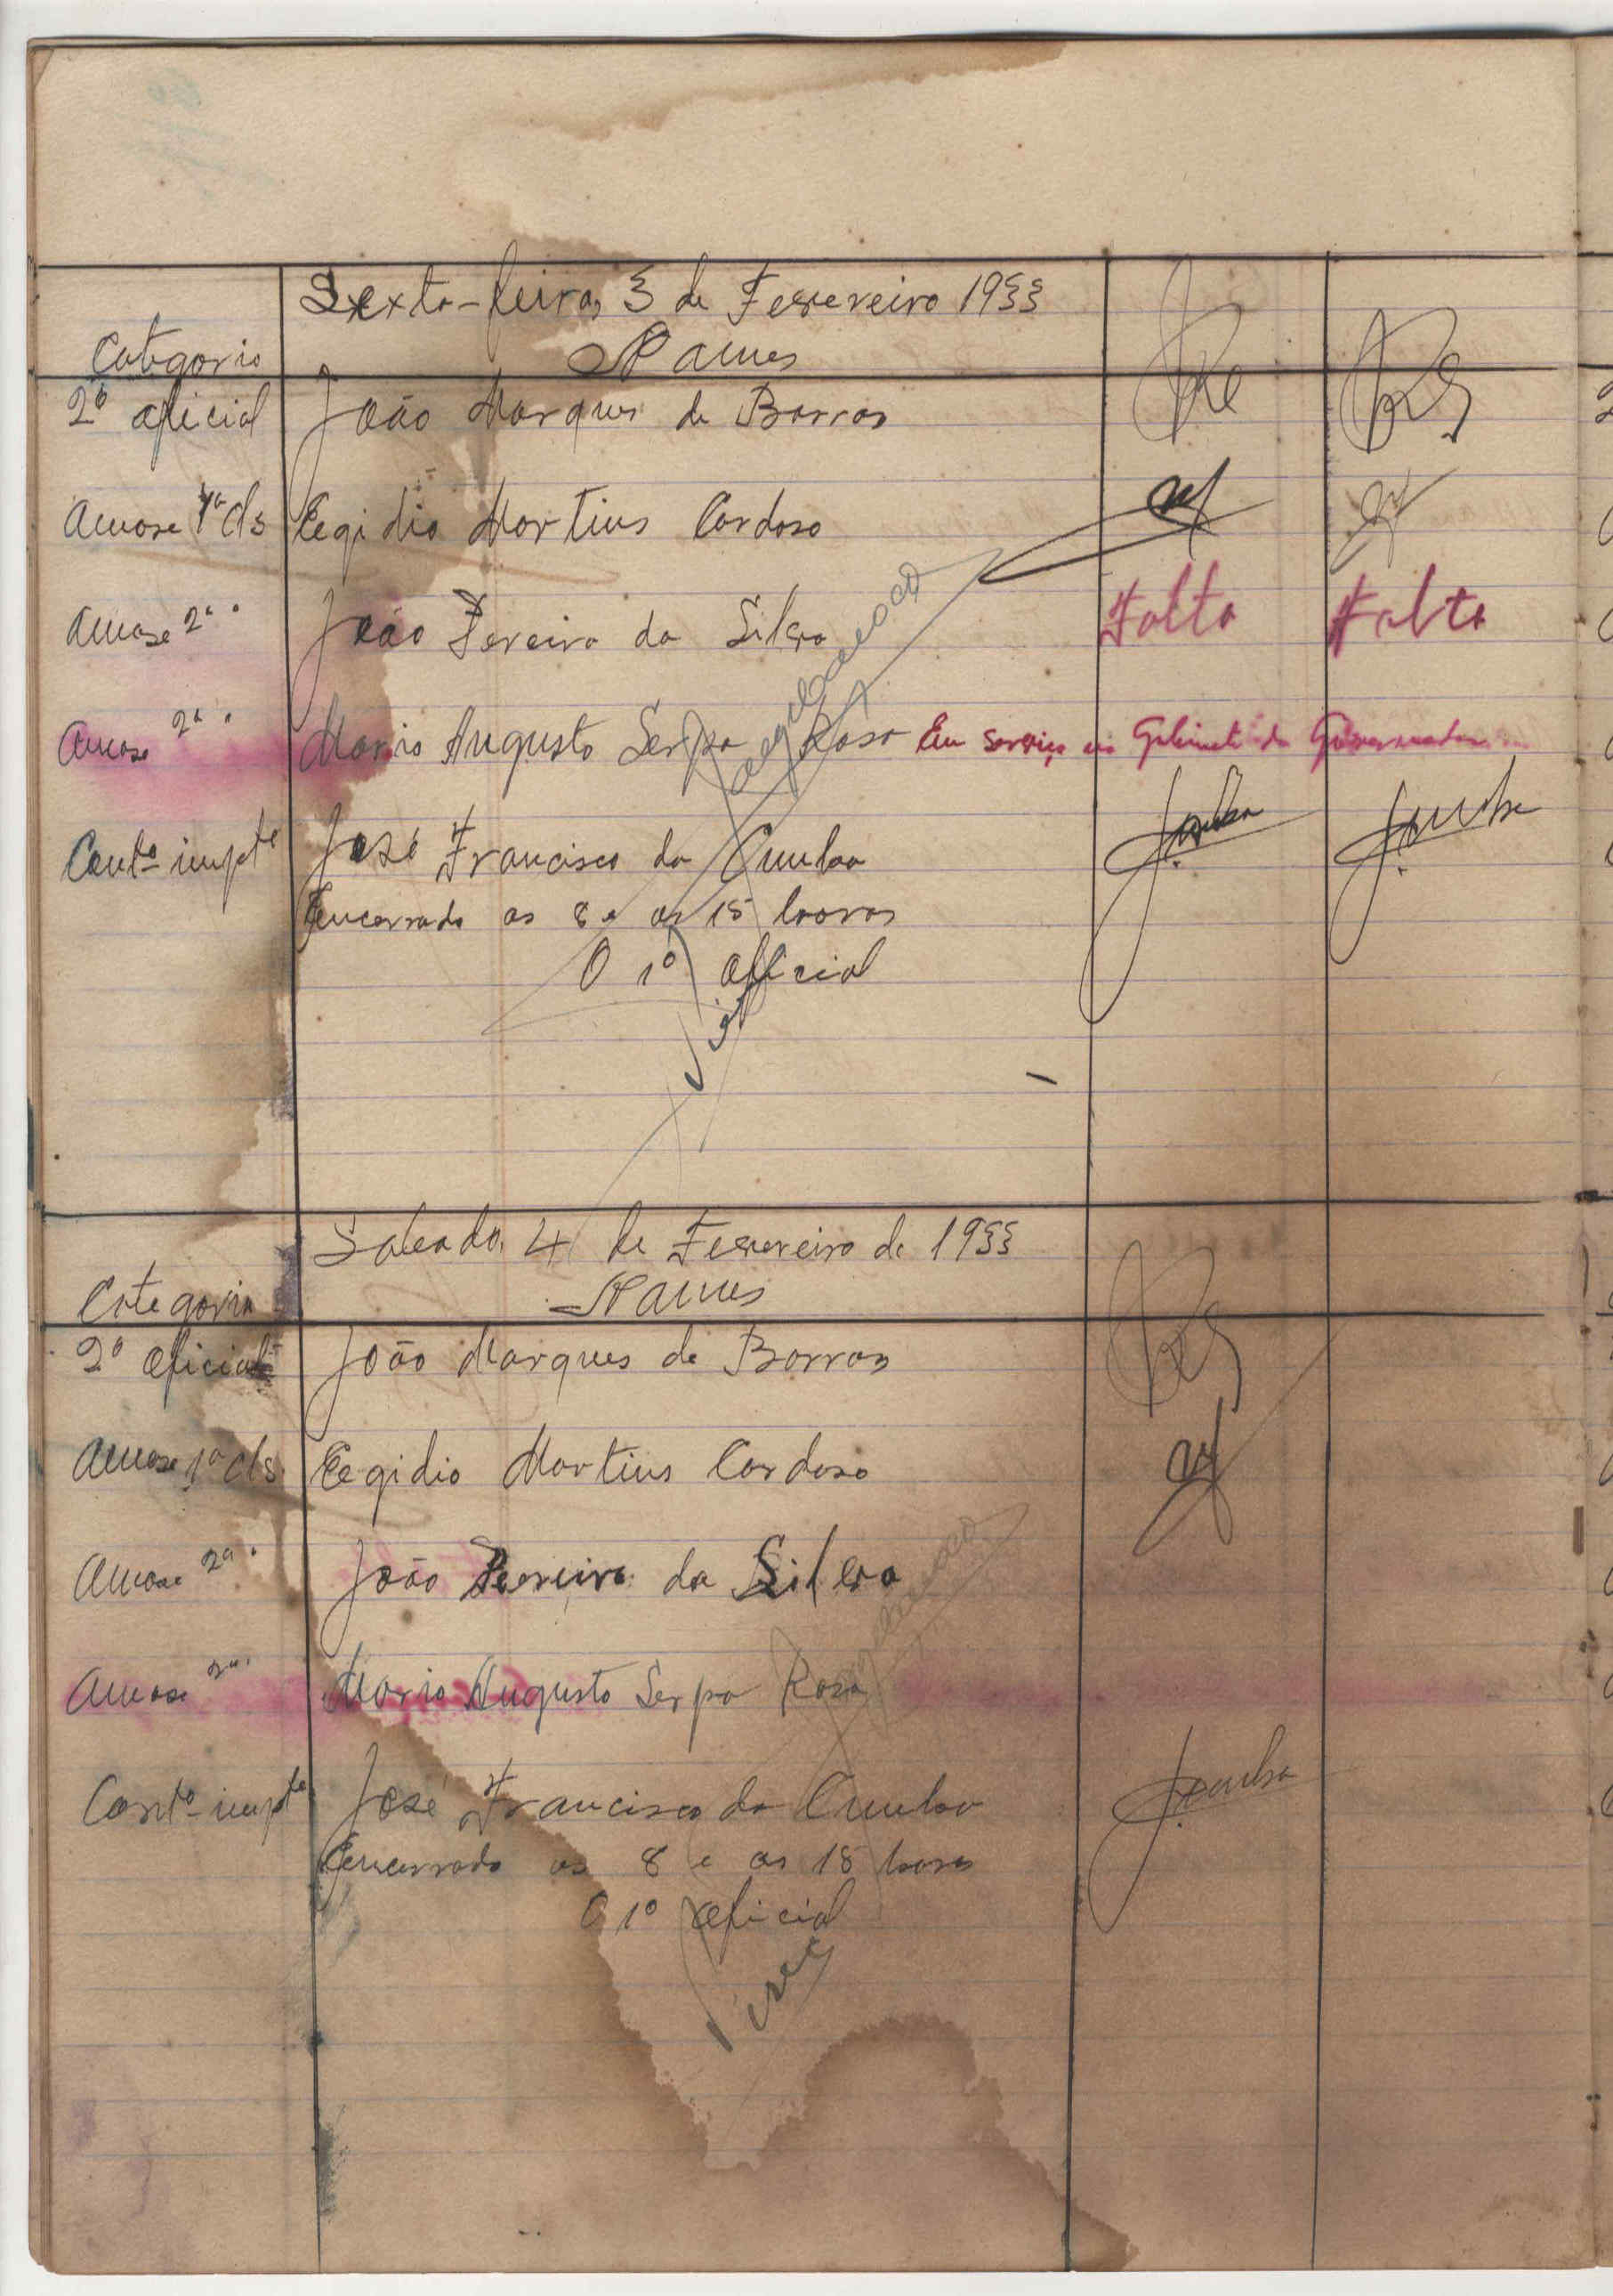 Sexta-feira, 3 de Fevereiro 1933
Categoria Nomes
2º oficial João Marques de Barros
Amose 1ª cls Egidio Martins Cardoso
Amose 2ª " João Pereira da Silva Falta Falta
Amose 2ª " Mario Augusto Serpa Rosa Em serviço no Gabinete do Governador
Contº impte José Francisco da Cunha JCunha JCunha
Encerrado as 8 e as 15 horas
O 1º oficial
Sabado, 4 de Fevereiro de 1933
Categoria Nomes
2º oficial João Marques de Barros
Amose 1ª cls Egidio Martins Cardoso
Amose 2ª " João Pereira da Silva
Amose 2ª " Mario Augusto Serpa Rosa
Contº impte José Francisco da Cunha JCunha
Encerrado as 8 e as 15 horas
O 1º oficial